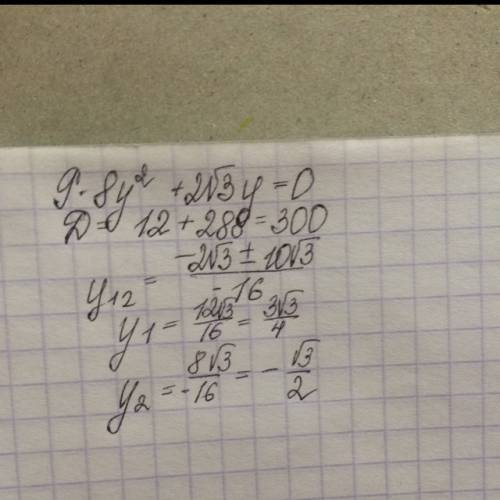 9 - 8y² + 2√3y = 0
D = 12 + 288 = 300
y₁₂ = (-2√3 ± 10√3)/(-16)
y₁ = 12√3/16 = 3√3/4
y₂ = -8√3/16 = -√3/2